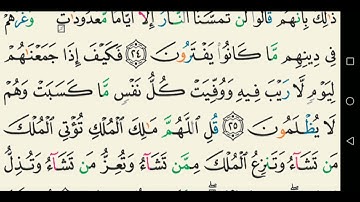 ذَٰلِكَ بِأَنَّهُمْ قَالُوا۟ لَن تَمَسَّنَا ٱلنَّارُ إِلَّآ أَيَّامًا مَّعْدُودَٰتٍ ۖ وَغَرَّهُمْ
فِى دِينِهِم مَّا كَانُوا۟ يَفْتَرُونَ ٢٤ فَكَيْفَ إِذَا جَمَعْنَٰهُمْ
لِيَوْمٍ لَّا رَيْبَ فِيهِ وَوُفِّيَتْ كُلُّ نَفْسٍ مَّا كَسَبَتْ وَهُمْ
لَا يُظْلَمُونَ ٢٥ قُلِ ٱللَّهُمَّ مَٰلِكَ ٱلْمُلْكِ تُؤْتِى ٱلْمُلْكَ
مَن تَشَآءُ وَتَنزِعُ ٱلْمُلْكَ مِمَّن تَشَآءُ وَتُعِزُّ مَن تَشَآءُ وَتُذِلُّ